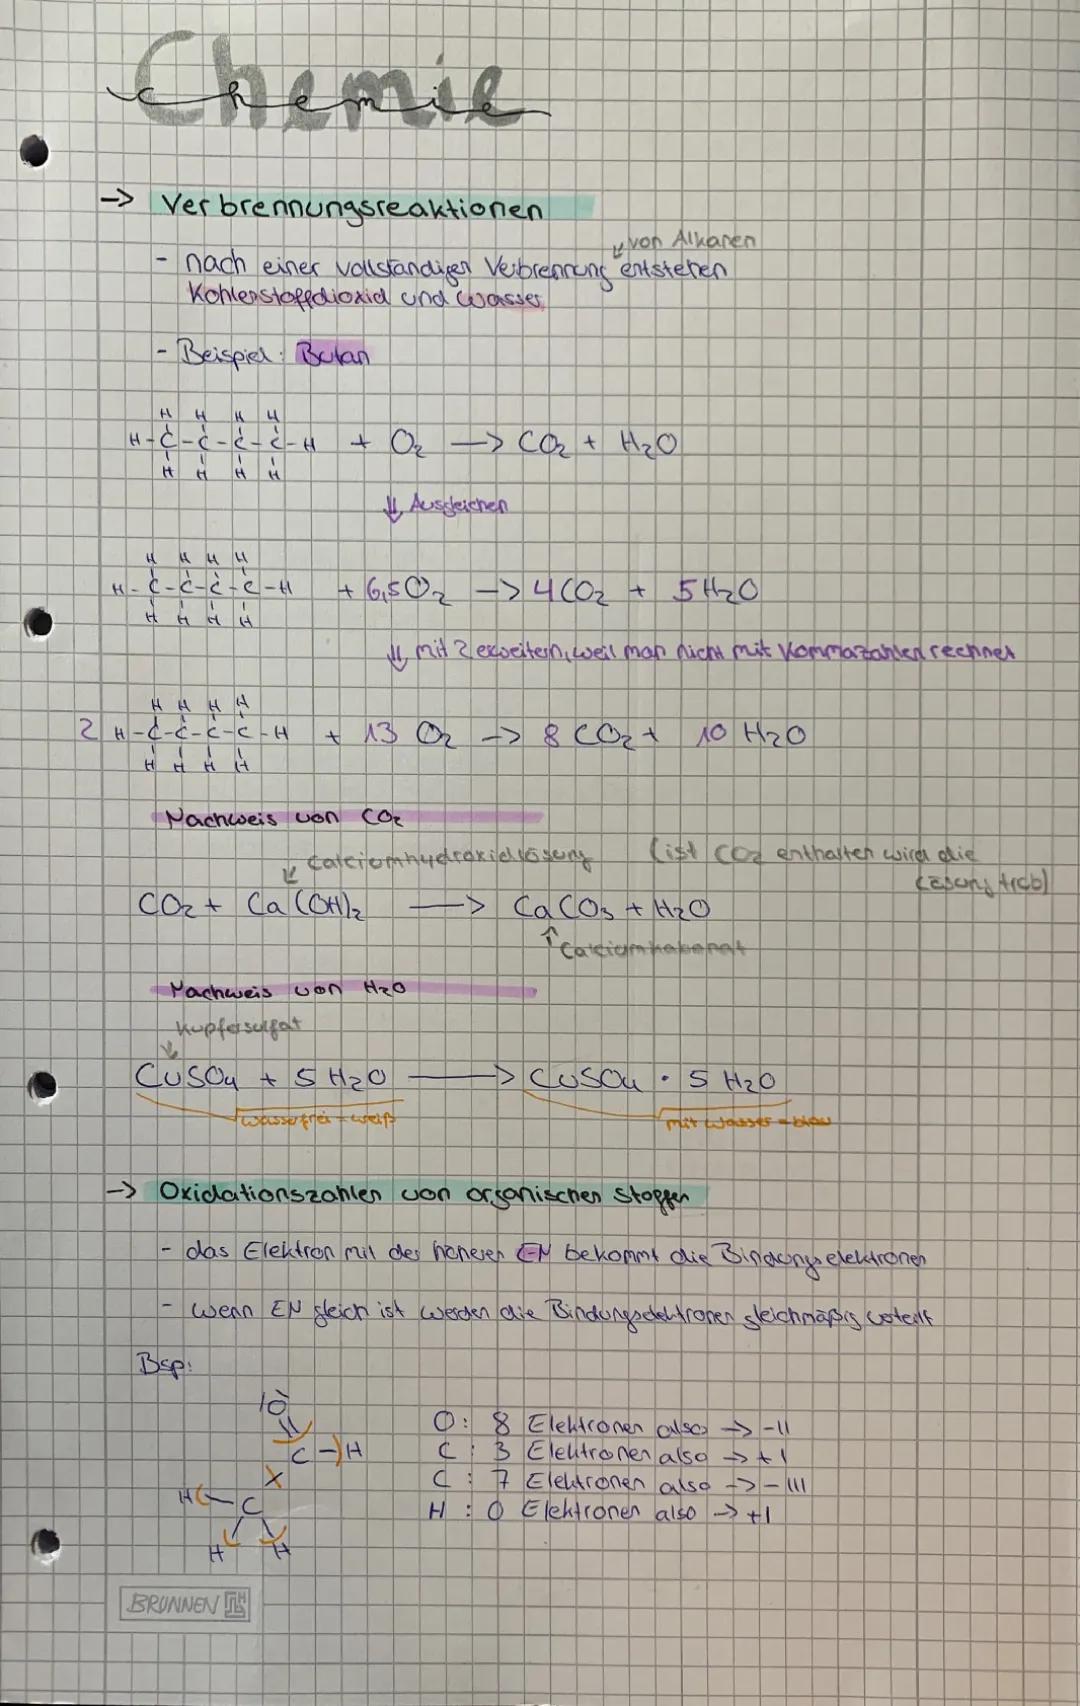 Chemie
Chemie
-> Verbrennungsreaktionen
von Alkanen
- nach einer vollständigen Verbrennung entstehen
Kohlenstoffdioxid und Wasser
- Beispiel: Butan
H H H H
H-C-C-C-C-H + O₂ -> CO₂ + H₂O
H H H H
⇓ Ausgleichen
H H H H
H-C-C-C-C-H + 6,5 O₂ -> 4 CO₂ + 5 H₂O
H H H H
⇓ mit 2 erweitern, weil man nicht mit Kommazahlen rechnet
H H H H
2 H-C-C-C-C-H + 13 O₂ -> 8 CO₂ + 10 H₂O
H H H H
Nachweis von CO₂
Calciumhydroxidlösung (ist CO₂ enthalten wird die
Lösung trüb)
CO₂ + Ca(OH)₂ -> CaCO₃ + H₂O
↑ Calciumkabonat
Nachweis von H₂O
Kupfersulfat
CuSO₄ + 5 H₂O -> CuSO₄ · 5 H₂O
wasserfrei = weiß mit Wasser = blau
-> Oxidationszahlen von organischen Stoffen
- das Elektron mit der höheren EN bekommt die Bindungselektronen
- wenn EN gleich ist werden die Bindungselektronen gleichmäßig verteilt
Bsp:
O
C-H
H-C
H H
O: 8 Elektronen also -> -II
C: 3 Elektronen also -> +I
C: 7 Elektronen also -> -III
H: 0 Elektronen also -> +I
BRUNNEN